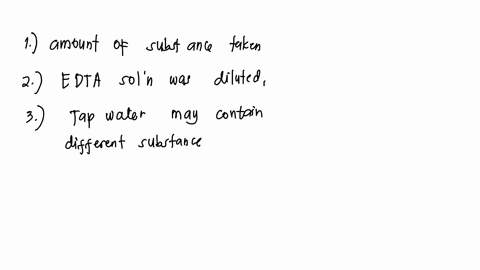 1.) amount of substance taken
2.) EDTA sol'n was diluted,
3.) Tap water may contain
different substance